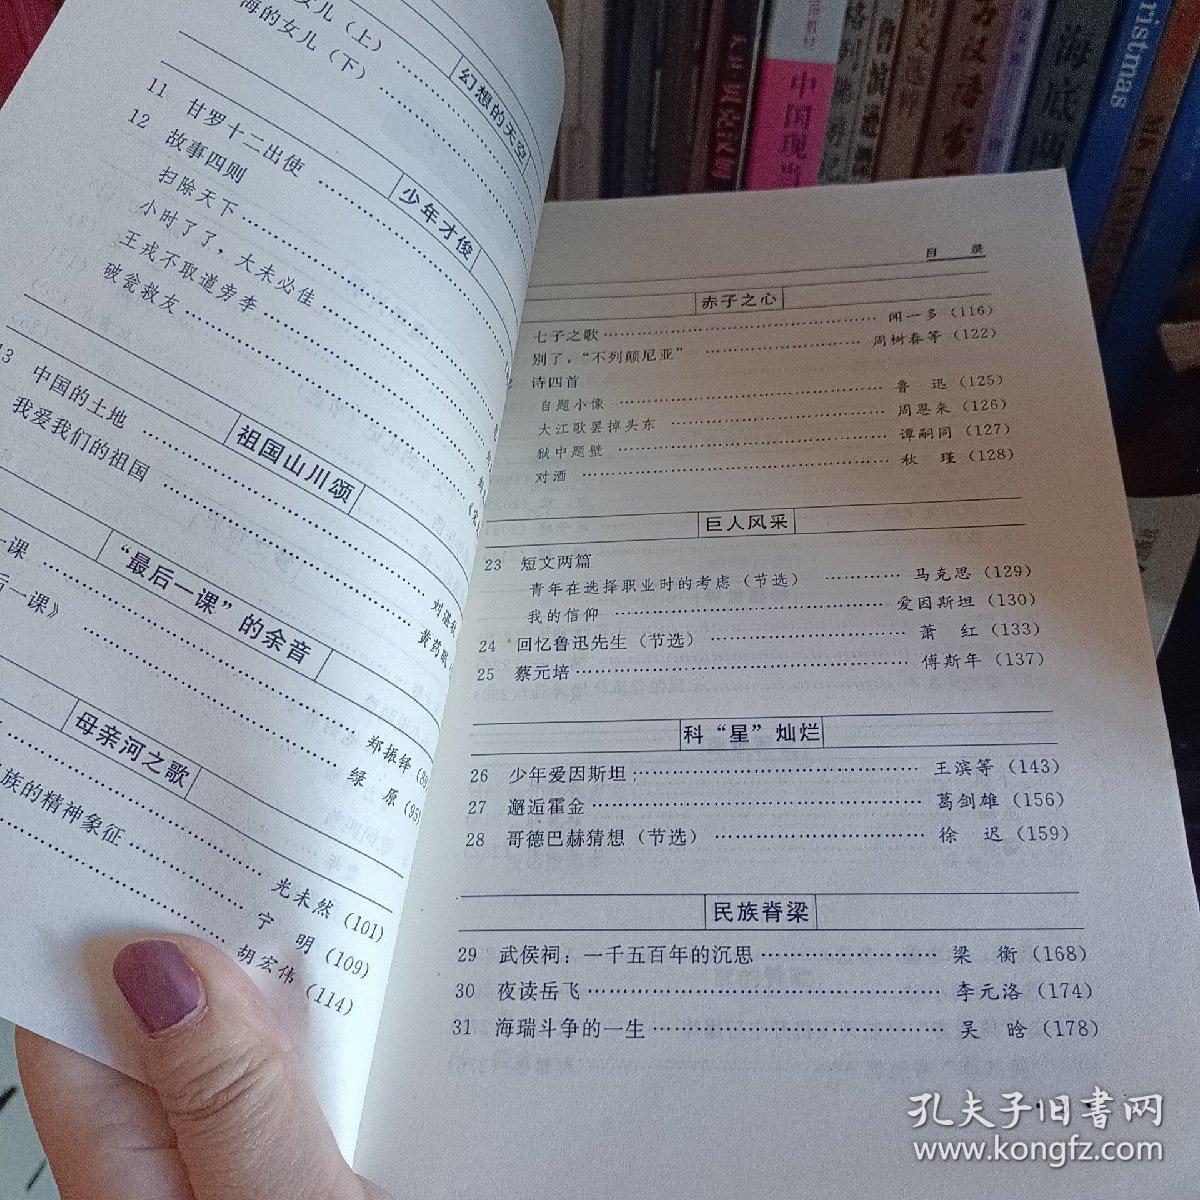 女儿（上）
海的女儿（下）
幻想的天空
11 甘罗十二出使
12 故事四则
扫除天下
小时了了，大未必佳
王戎不取道旁李
破瓮救友
少年才俊
13 中国的土地
我爱我们的祖国
祖国山川颂
刘湛秋
黄药眠
一课
后一课》
“最后一课”的余音
郑振铎
绿 原 (95)
母亲河之歌
族的精神象征
光未然 (101)
宁 明 (109)
胡宏伟 (114)
目 录
赤子之心
七子之歌 闻一多 (116)
别了，“不列颠尼亚” 周树春等 (122)
诗四首
自题小像 鲁 迅 (125)
大江歌罢掉头东 周恩来 (126)
狱中题壁 谭嗣同 (127)
对酒 秋 瑾 (128)
巨人风采
23 短文两篇
青年在选择职业时的考虑（节选） 马克思 (129)
我的信仰 爱因斯坦 (130)
24 回忆鲁迅先生（节选） 萧 红 (133)
25 蔡元培 傅斯年 (137)
科“星”灿烂
26 少年爱因斯坦 王滨等 (143)
27 邂逅霍金 葛剑雄 (156)
28 哥德巴赫猜想（节选） 徐 迟 (159)
民族脊梁
29 武侯祠：一千五百年的沉思 梁 衡 (168)
30 夜读岳飞 李元洛 (174)
31 海瑞斗争的一生 吴 晗 (178)
中国现当
海底两
ristmas
孔夫子旧书网
www.kongfz.com